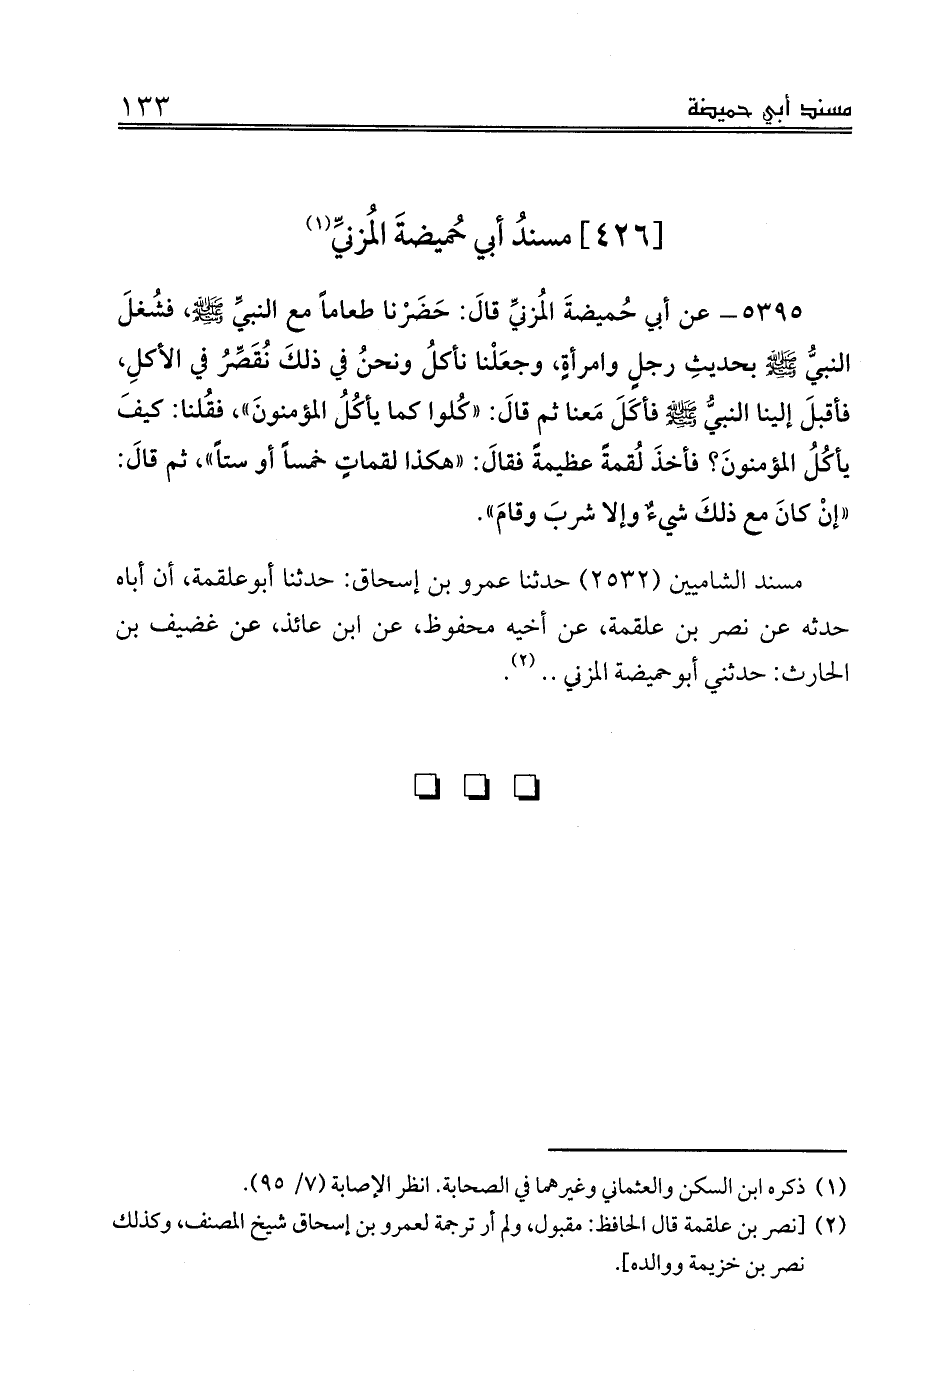 مسند أبي حميضة ١٣٣
[٤٢٦] مسندُ أبي حُميضةَ المُزنيِّ(١)
٥٣٩٥ـ عن أبي حُميضةَ المُزنيِّ قالَ: حَضَرْنا طعاماً مع النبيِّ ﷺ، فشُغلَ
النبيُّ ﷺ بحديثِ رجلٍ وامرأةٍ، وجعَلْنا نأكلُ ونحنُ في ذلكَ نُقَصِّرُ في الأكلِ،
فأقبلَ إلينا النبيُّ ﷺ فأكَلَ مَعنا ثم قالَ: «كُلوا كما يأكُلُ المؤمنونَ»، فقُلنا: كيفَ
يأكُلُ المؤمنونَ؟ فأخذَ لُقمةً عظيمةً فقالَ: «هكذا لقماتٍ خمساً أو ستاً»، ثم قالَ:
«إنْ كانَ مع ذلكَ شيءٌ وإلا شربَ وقامَ».
مسند الشاميين (٢٥٣٢) حدثنا عمرو بن إسحاق: حدثنا أبوعلقمة، أن أباه
حدثه عن نصر بن علقمة، عن أخيه محفوظ، عن ابن عائذ، عن غضيف بن
الحارث: حدثني أبوحميضة المزني .. (٢).
(١) ذكره ابن السكن والعثماني وغيرهما في الصحابة. انظر الإصابة (٧/ ٩٥).
(٢) [نصر بن علقمة قال الحافظ: مقبول، ولم أر ترجمة لعمرو بن إسحاق شيخ المصنف، وكذلك
نصر بن خزيمة ووالده].